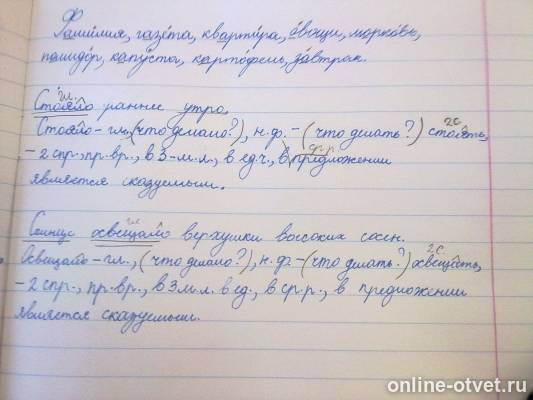 Фамилия, газета, квартира, овощи, морковь,
помидор, капуста, картофель, завтрак.
гл.
Стояло раннее утро.
2с.
Стояло - гл., (что делало?), н.ф. - (что делать?) стоять,
ср.р.
- 2 спр., пр.вр., в 3-м.л., в ед.ч., в предложении
является сказуемым.
гл.
Солнце освещало верхушки высоких сосен.
2с.
Освещало - гл., (что делало?), н.ф. - (что делать?)
- 2 спр., пр.вр., в 3м.л. в ед., в ср.р., в предложении
является сказуемым.
online-otvet.ru